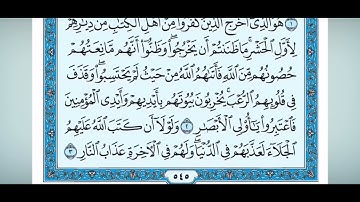 ١ هُوَ الَّذِي أَخْرَجَ الَّذِينَ كَفَرُوا مِنْ أَهْلِ الْكِتَٰبِ مِن دِيَٰرِهِمْ
لِأَوَّلِ الْحَشْرِ ۚ مَا ظَنَنتُمْ أَن يَخْرُجُوا ۖ وَظَنُّوا أَنَّهُم مَّانِعَتُهُمْ
حُصُونُهُم مِّنَ اللَّهِ فَأَتَىٰهُمُ اللَّهُ مِنْ حَيْثُ لَمْ يَحْتَسِبُوا ۖ وَقَذَفَ
فِي قُلُوبِهِمُ الرُّعْبَ ۚ يُخْرِبُونَ بُيُوتَهُم بِأَيْدِيهِمْ وَأَيْدِي الْمُؤْمِنِينَ
فَاعْتَبِرُوا يَٰٓأُولِي الْأَبْصَٰرِ ٢ وَلَوْلَا أَن كَتَبَ اللَّهُ عَلَيْهِمُ
الْجَلَاءَ لَعَذَّبَهُمْ فِي الدُّنْيَا ۖ وَلَهُمْ فِي الْآخِرَةِ عَذَابُ النَّارِ ٣
٥٤٥